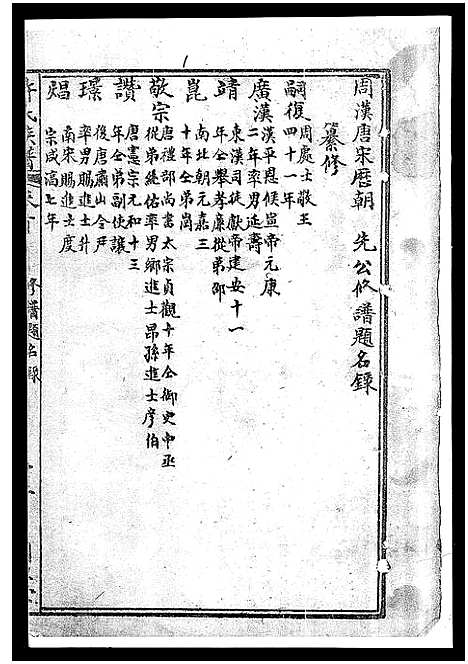 周漢唐宋厯朝 先公修譜題名錄
纂修
嗣復 周處士敬王四十一年
廣漢 漢平恩侯宣帝元康二年率男延壽
靖 東漢司徒獻帝建安十一年仝舉孝廉從弟邵
崑 南北朝元嘉三十年仝弟崗
敬宗 唐禮部尚書太宗貞觀十年仝御史中丞從弟繞佑率男鄉進士昂孫進士彥伯
讚 唐憲宗元和十三年仝弟副使讓
璟 後唐蕭山令尹率男賜進士升
焻 南宋賜進士度宗咸淳七年
許氏族譜
修譜題名錄